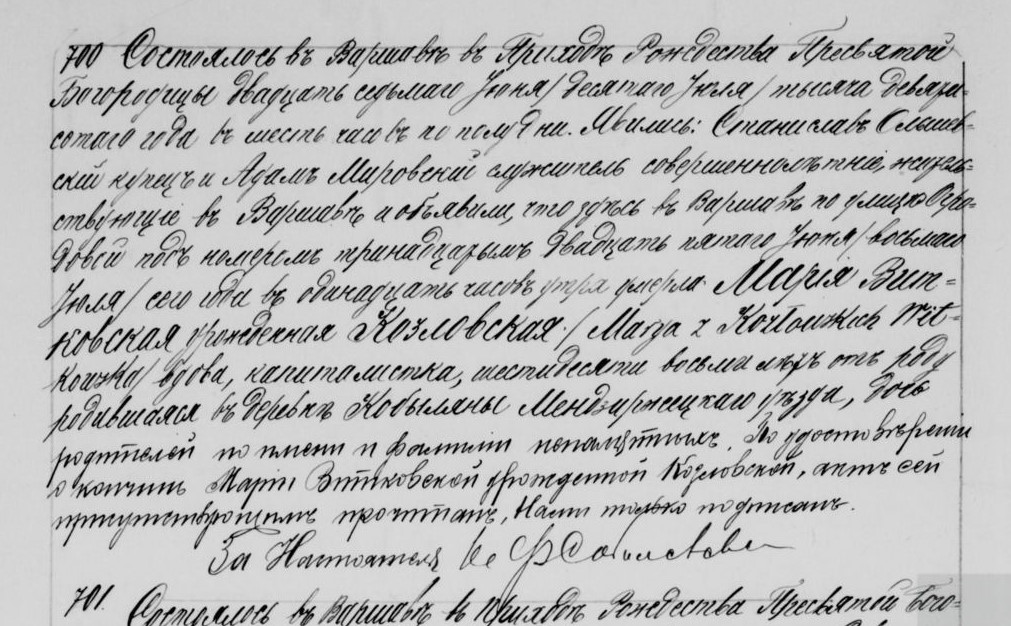 700 Состоялось въ Варшавѣ въ Приходѣ Рождества Пресвятой
Богородицы двадцать седьмаго Іюня / десятаго Іюля / тысяча девять-
сотаго года въ шесть часовъ по полудни. Явились: Станиславъ Ольшев-
скій купецъ и Адамъ Мировскій служитель совершеннолѣтніе, житель-
ствующіе въ Варшавѣ и объявили, что здѣсь въ Варшавѣ по улицѣ Огро-
довой подъ номеромъ тринадцатымъ двадцать пятаго Іюня / восьмаго
Іюля / сего года въ одинадцать часовъ утра умерла Марія Вит-
ковская урожденная Козловская / Marya z Kozłowskich Wit-
kowska / вдова, капиталистка, шестидесяти восьми лѣтъ отъ роду
родившаяся въ деревнѣ Кобыляны Мендзиржецкаго уѣзда, дочь
родителей по имени и фамиліи непамятныхъ. По удостовѣреніи
о кончинѣ Маріи Витковской урожденной Козловской, актъ сей
присутствующимъ прочитанъ, Нами только подписанъ.
За Настоятеля
701. Состоялось въ Варшавѣ въ Приходѣ Рождества Пресвятой Бого-